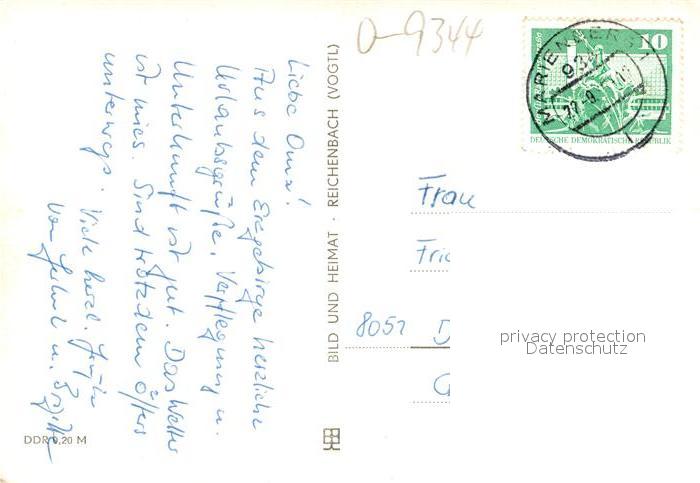 0-9344
Liebe Oma!
Aus dem Erzgebirge herzliche
Urlaubsgrüße. Verpflegung u.
Unterkunft ist gut. Das Wetter
ist mies. Sind trotzdem öfters
unterwegs. Viele herzl. Grüße
von u.
DDR 0,20 M
BILD UND HEIMAT · REICHENBACH (VOGTL)
MARIENBERG 1
10
DEUTSCHE DEMOKRATISCHE REPUBLIK
Frau
Frie
8051 D
G
privacy protection
Datenschutz